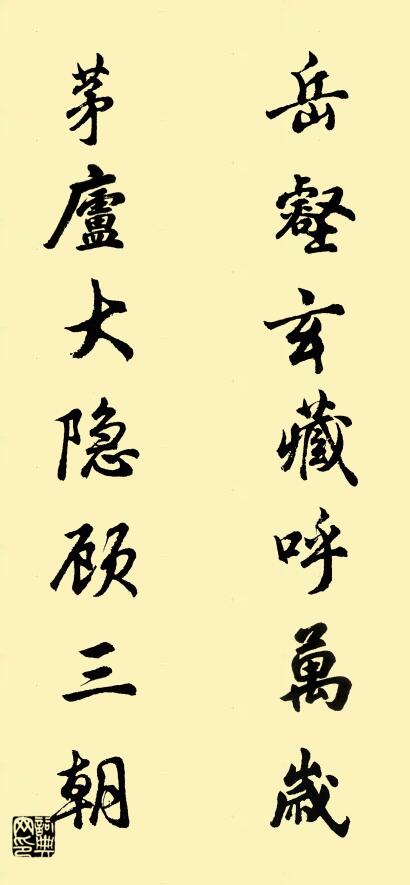 岳壑玄藏呼萬歲
茅廬大隐顾三朝
詞典网印